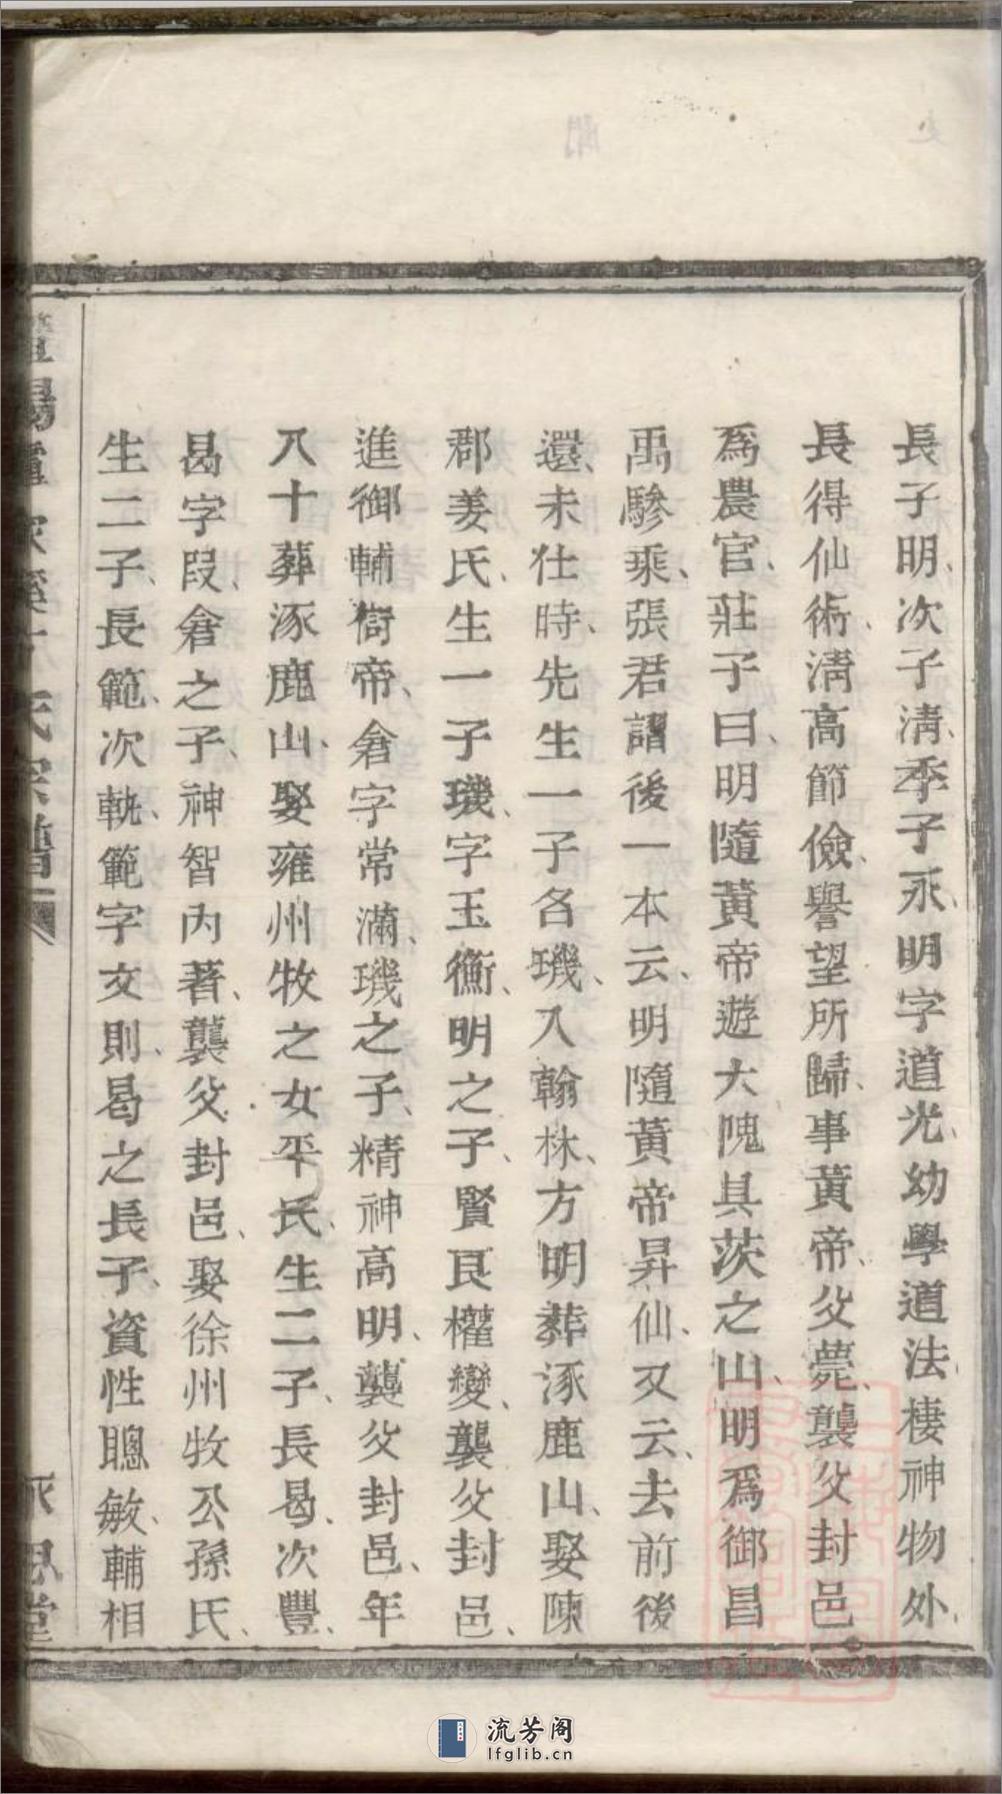 長子明、次子淸、季子永、明字道光、幼學道法、棲神物外、
長得仙術、淸高節儉、譽望所歸、事黃帝、父薨、襲父封邑
爲農官、莊子曰、明隨黃帝遊大隗具茨之山、明爲御、昌
禹驂乘、張君謂後一本云、明隨黃帝昇仙、又云、去前後
還、未仕時、先生一子名璣、入翰林、方明葬涿鹿山、娶陳
郡姜氏、生一子璣、字玉衡、明之子、賢良權變、襲父封邑、
進御輔嚳帝、倉字常滿、璣之子、精神高明、襲父封邑、年
八十葬涿鹿山、娶雍州牧之女平氏、生二子、長曷、次豐、
曷字叚、倉之子、神智內著、襲父封邑、娶徐州牧公孫氏、
生二子、長範、次軌、範字文則、曷之長子、資性聰敏、輔相
氏宗譜
堂
流芳阁
lfglib.cn